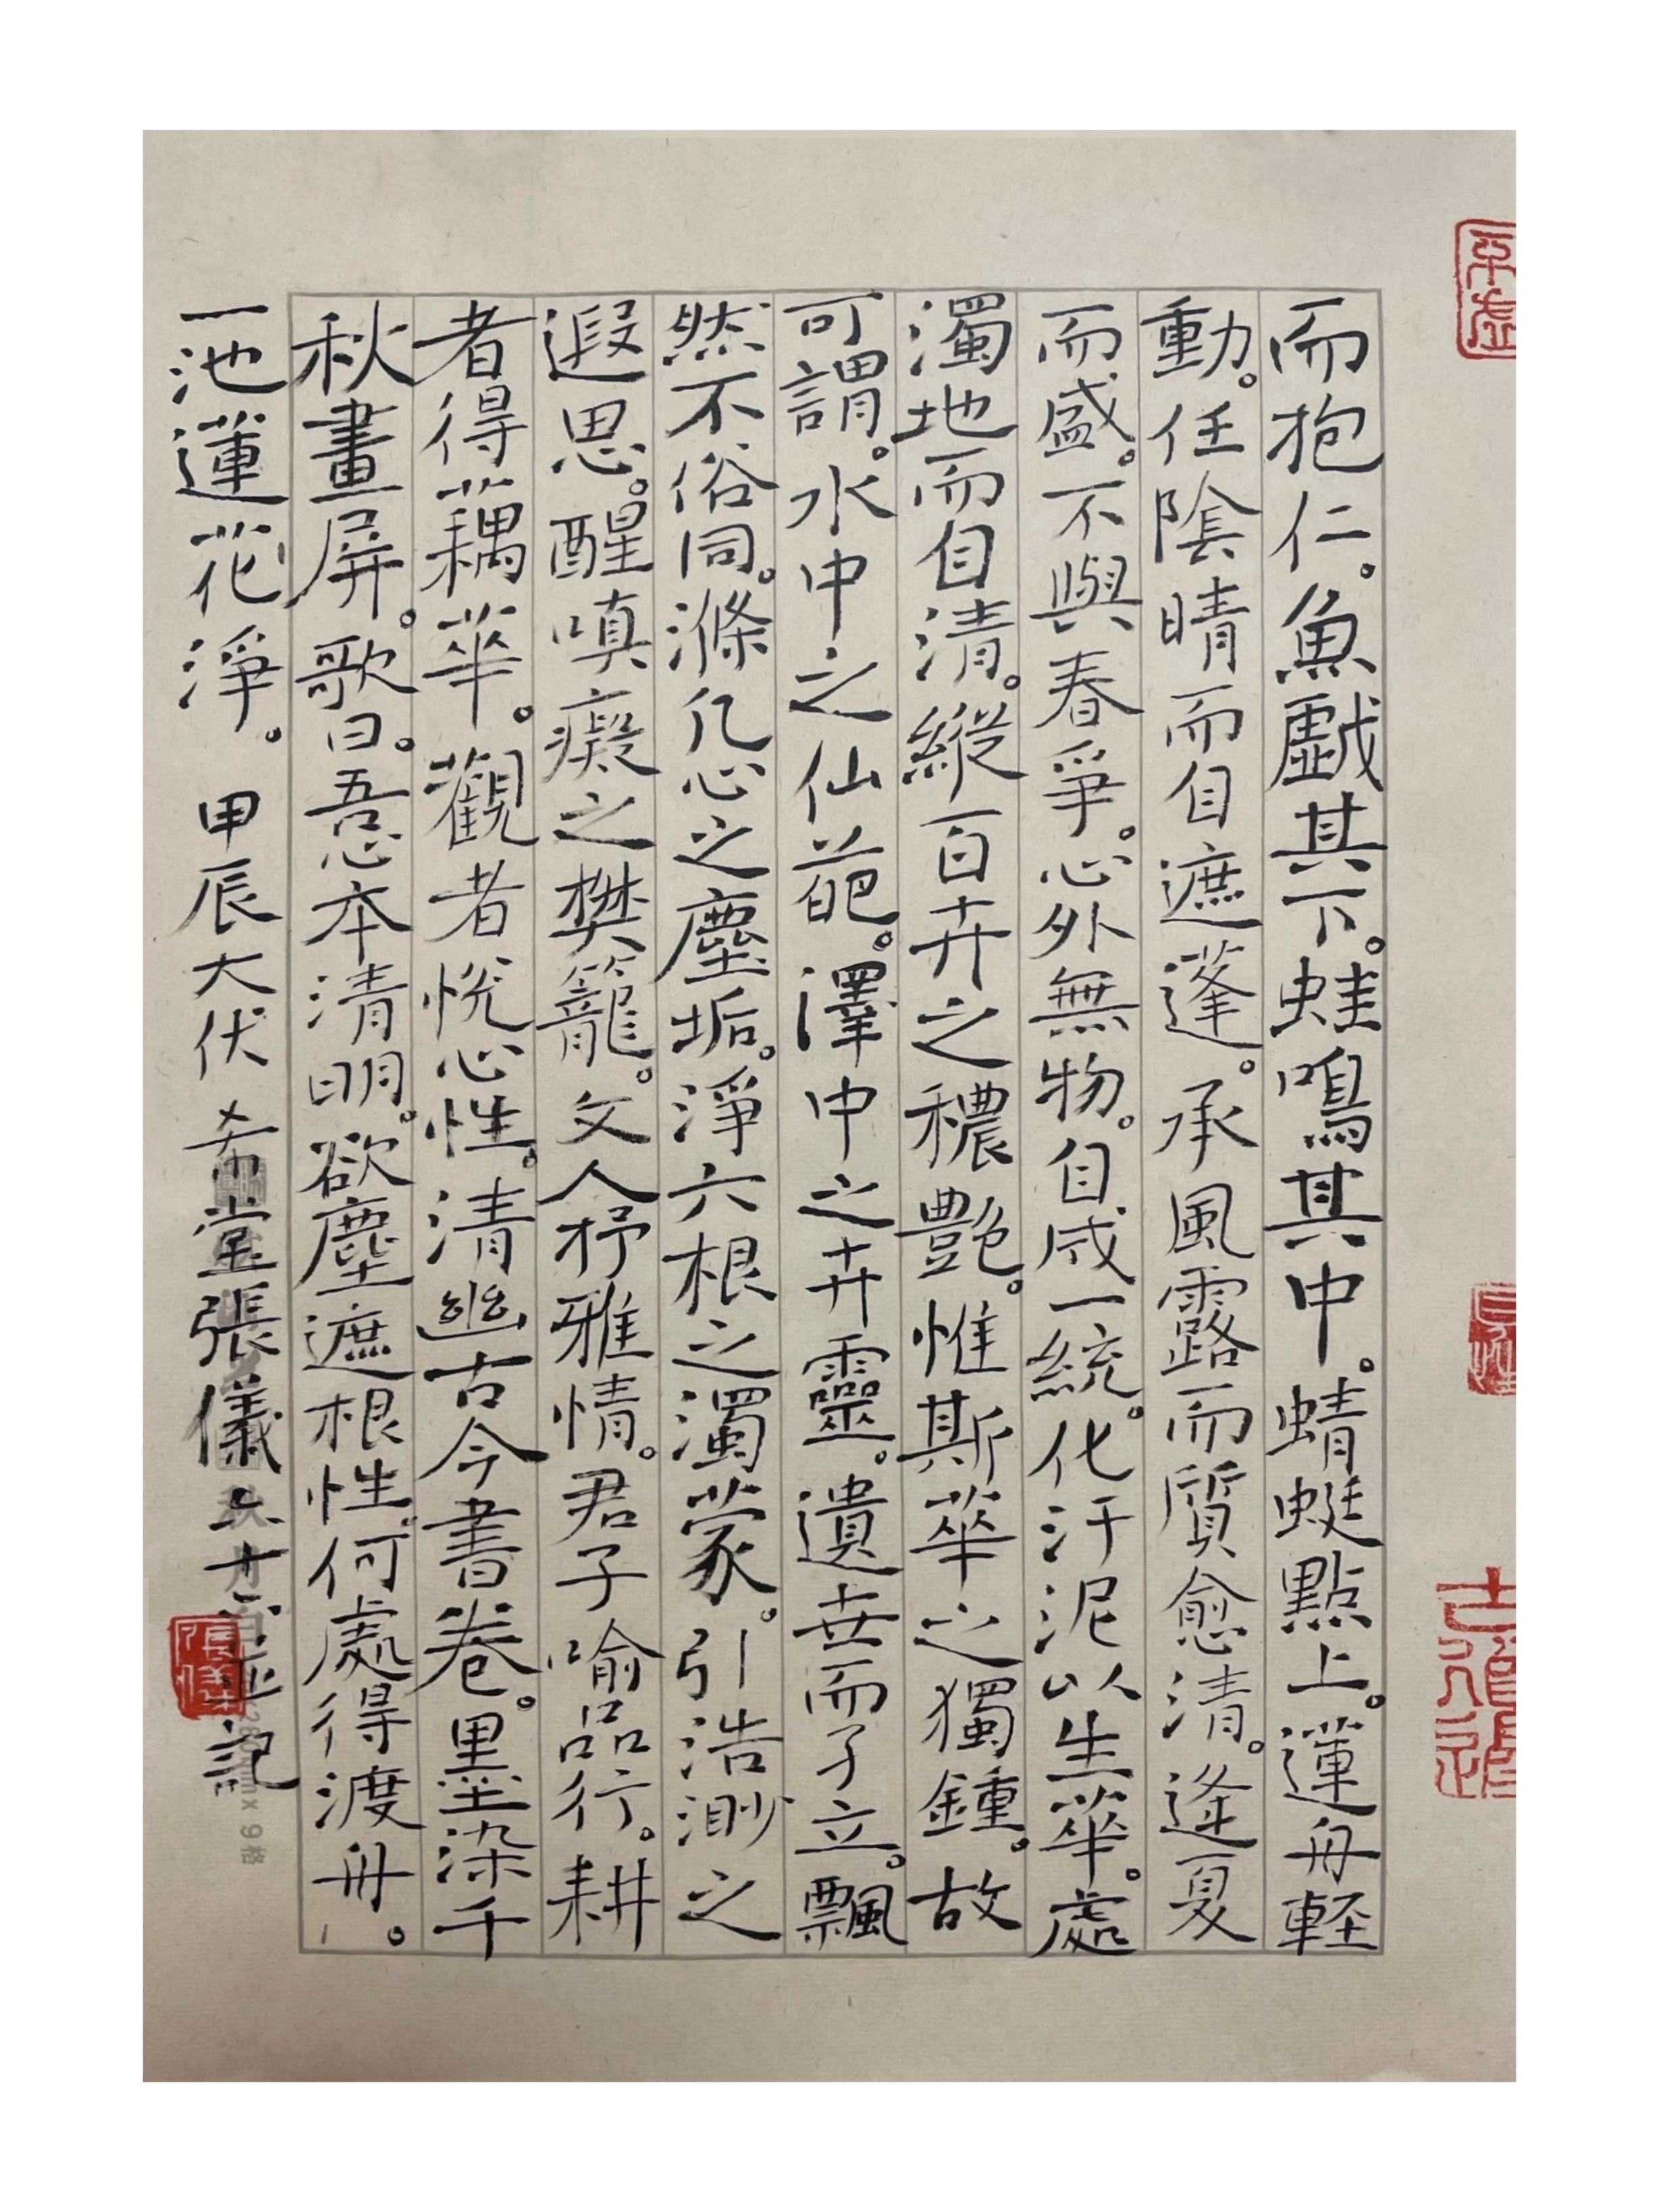 而抱仁。魚戲其下。蛙鳴其中。蜻蜓點上。蓮舟輕
動。任陰晴而自遮蓬。承風露而質愈清。逢夏
而盛。不與春爭。心外無物。自成一統。化汙泥以生華。處
濁地而自清。縱百卉之穠艷。惟斯華之獨鍾。故
可謂。水中之仙葩。澤中之卉靈。遺世而孑立。飄
然不俗同。滌凡心之塵垢。淨六根之濁蒙。引浩渺之
遐思。醒嗔癡之樊籠。文人抒雅情。君子喻品行。耕
者得藕華。觀者悅心性。清幽古今書卷。墨染千
秋畫屏。歌曰。吾心本清明。欲塵遮根性。何處得渡舟。
一池蓮花淨。甲辰大伏 希堂張儀 記